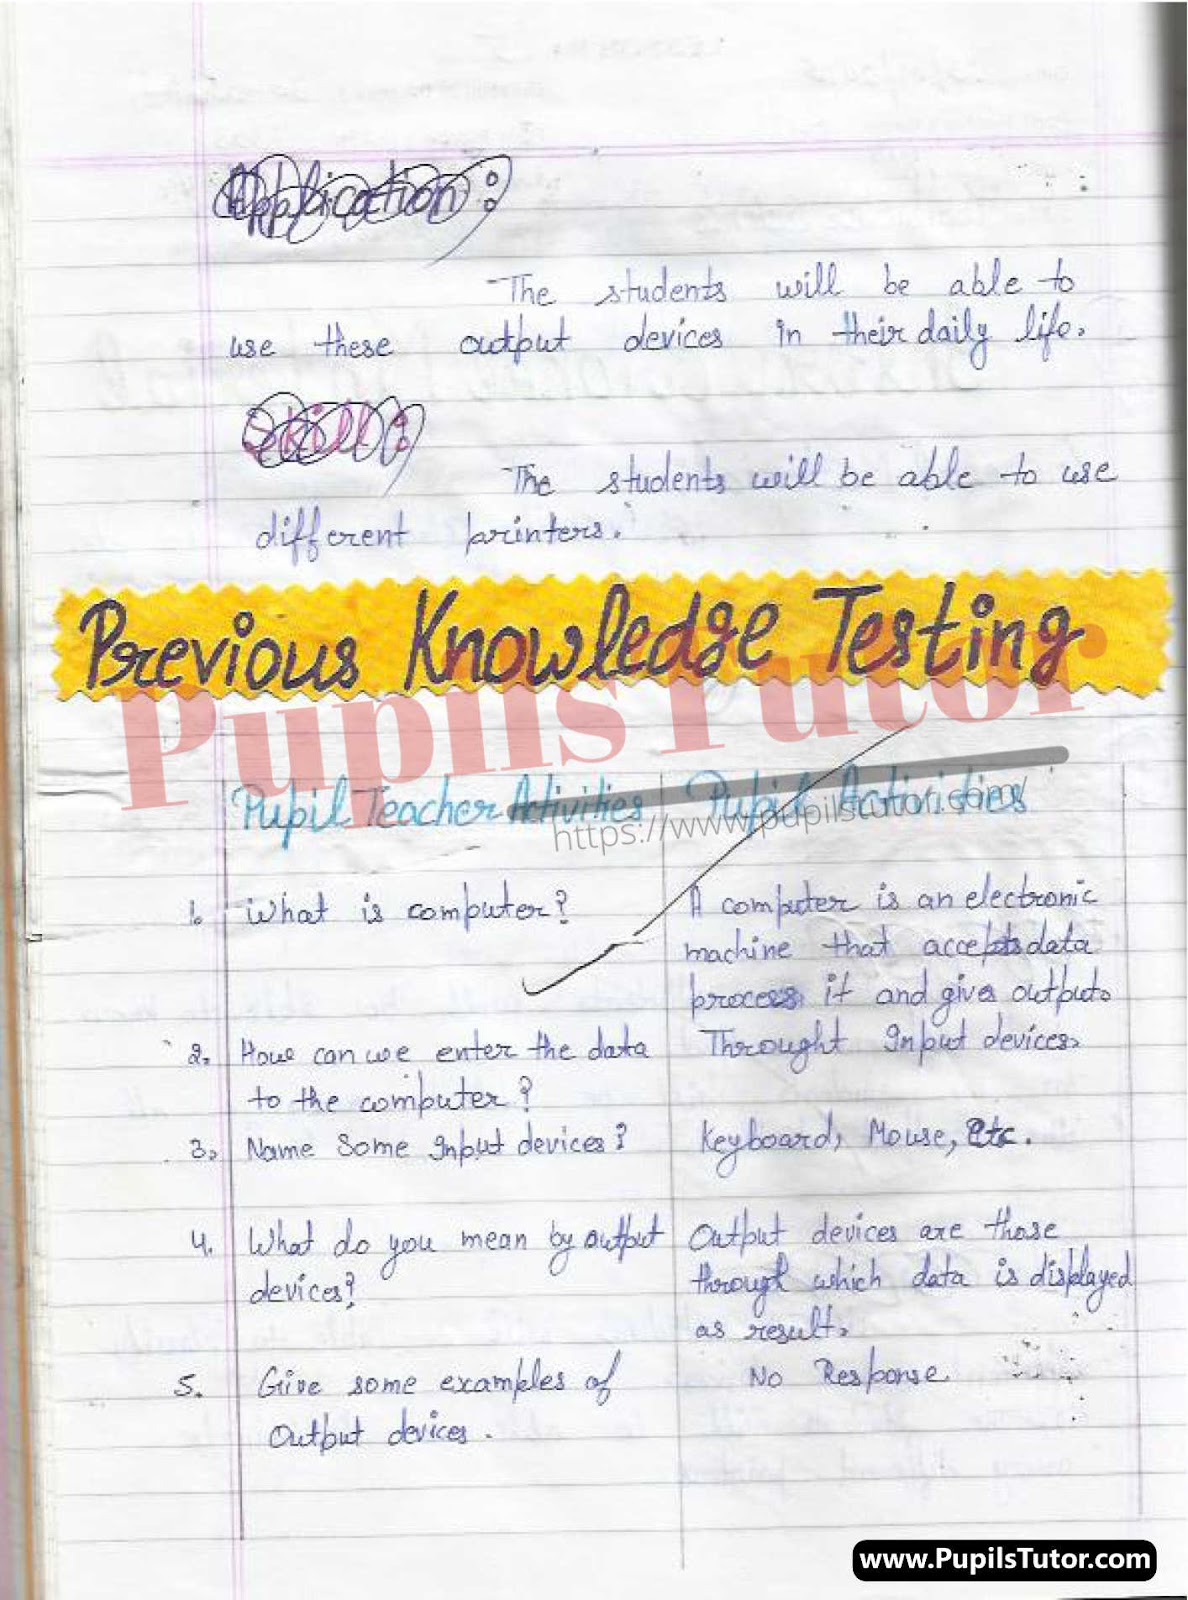 Application :
The students will be able to
use these output devices in their daily life.
Skill :
The students will be able to use
different printers.
Previous Knowledge Testing
PupilsTutor
https://www.pupilstutor.com/
Pupil Teacher Activities Pupil Activities
1. What is computer? A computer is an electronic
machine that accepts data
process it and gives output.
2. How can we enter the data Throught Input devices.
to the computer?
3. Name Some Input devices? Keyboard, Mouse, Etc.
4. What do you mean by output Output devices are those
devices? through which data is displayed
as result.
5. Give some examples of No Response
Output devices.
www.PupilsTutor.com